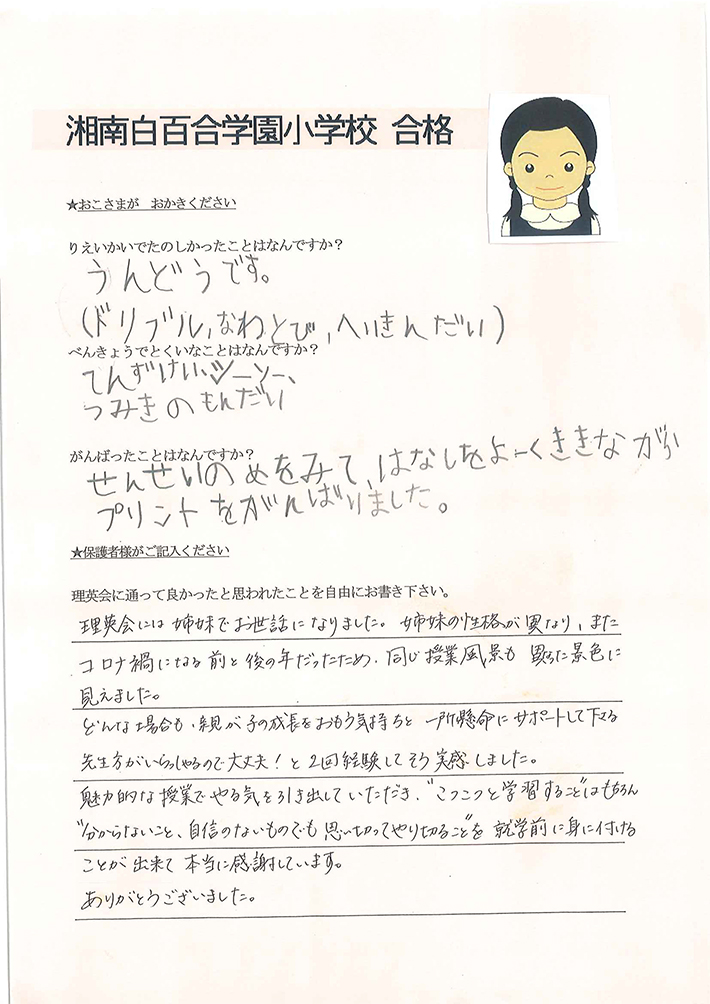 湘南白百合学園小学校 合格
★おこさまが おかきください
りえいかいでたのしかったことはなんですか？
うんどうです。
(ドリブル,なわとび,へいきんだい)
べんきょうでとくいなことはなんですか？
てんずけい、シーソー、
つみきのもんだい
がんばったことはなんですか？
せんせいのめをみて、はなしをよーくききながら
プリントをがんばりました。
★保護者様がご記入ください
理英会に通って良かったと思われたことを自由にお書き下さい。
理英会には姉妹でお世話になりました。姉妹の性格が異なり、また
コロナ禍になる前と後の年だったため、同じ授業風景も異った景色に
見えました。
どんな場合も、親が子の成長をおもう気持ちと一所懸命にサポートして下さる
先生方がいらっしゃるので大丈夫！と2回経験してそう実感しました。
魅力的な授業でやる気を引き出していただき、"こつこつと学習すること"はもちろん
"分からないこと、自信のないものでも思い切ってやり切ること"を就学前に身に付ける
ことが出来て本当に感謝しています。
ありがとうございました。